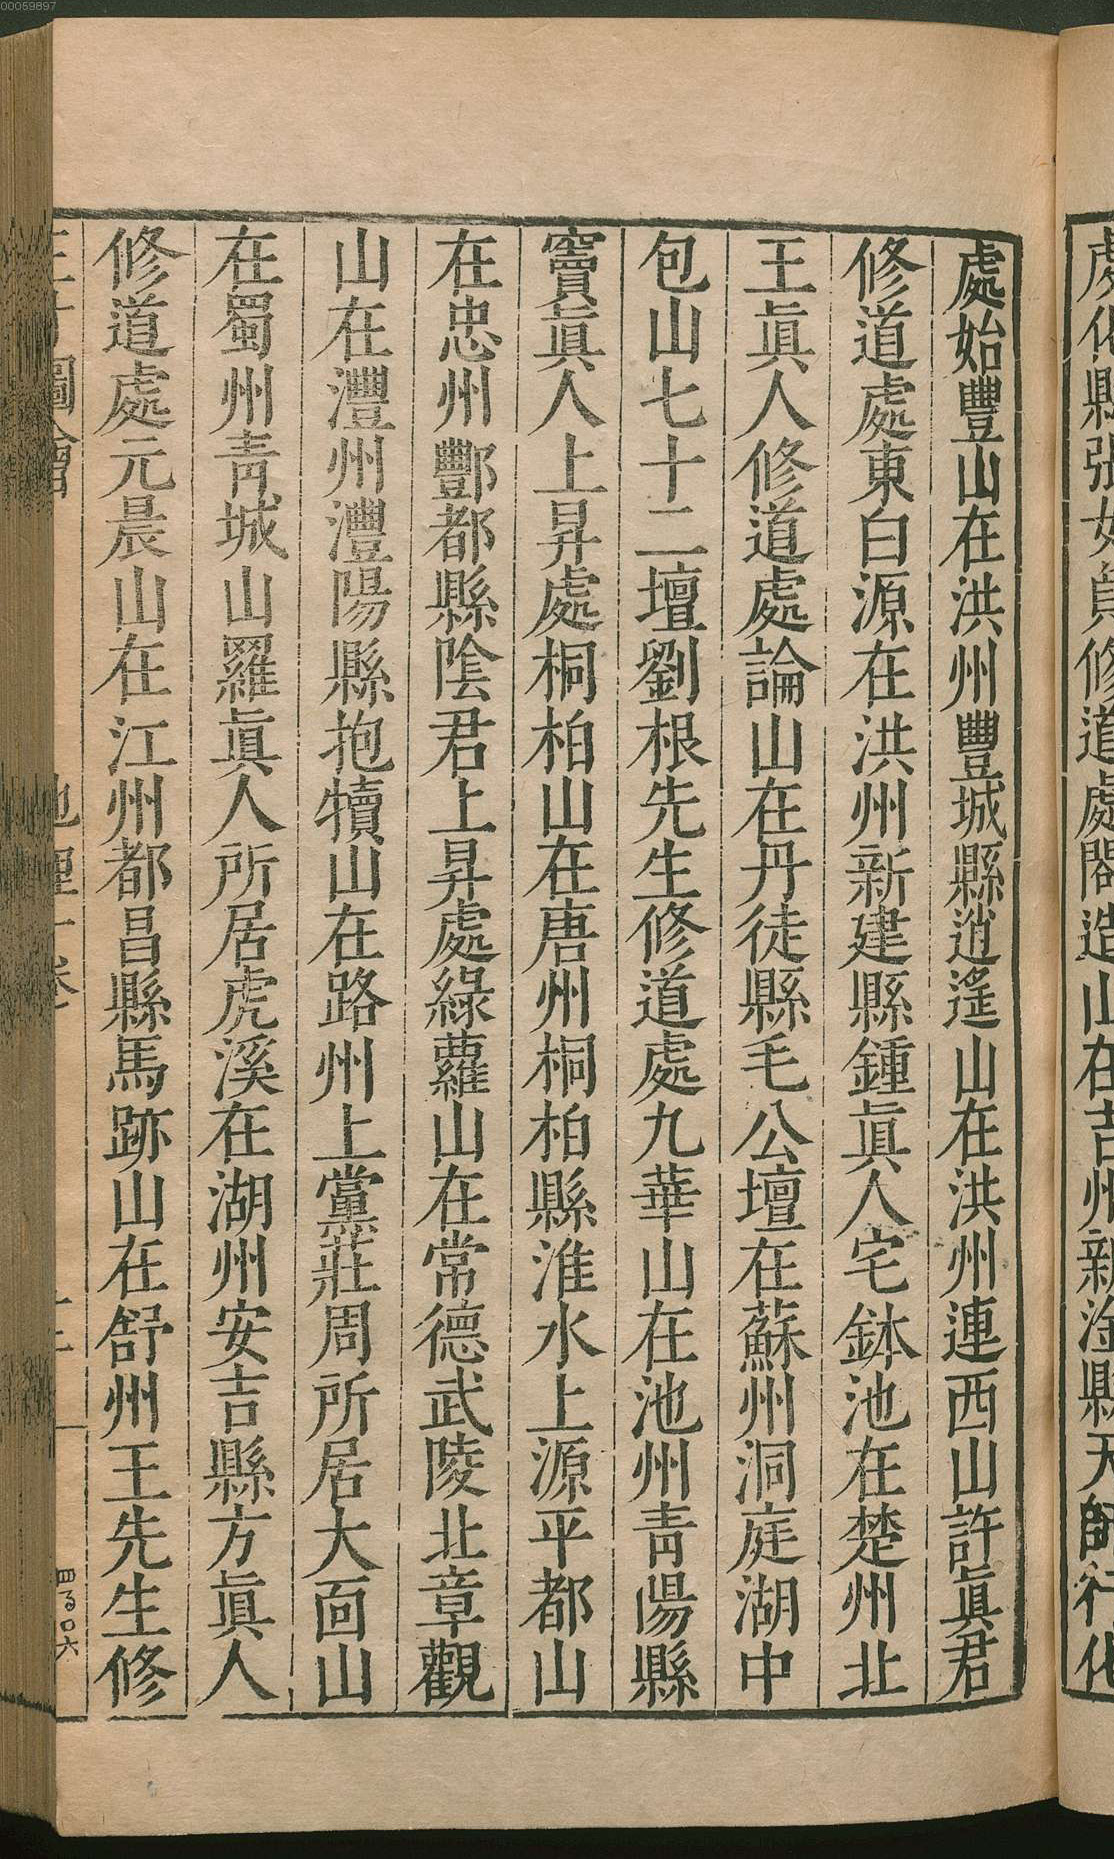 處始豐山在洪州豐城縣逍遙山在洪州連西山許眞君
修道處東白源在洪州新建縣鍾眞人宅鉢池在楚州北
王眞人修道處論山在丹徒縣毛公壇在蘇州洞庭湖中
包山七十二壇劉根先生修道處九華山在池州青陽縣
竇眞人上昇處桐柏山在唐州桐柏縣淮水上源平都山
在忠州酆都縣陰君上昇處綠蘿山在常德武陵北章觀
山在灃州灃陽縣抱犢山在路州上黨莊周所居大面山
在蜀州青城山羅眞人所居虎溪在湖州安吉縣方眞人
修道處元晨山在江州都昌縣馬跡山在舒州王先生修
處化縣張女眞修道處閣造山在吉州新淦縣天師行化
四百〇六
00059897